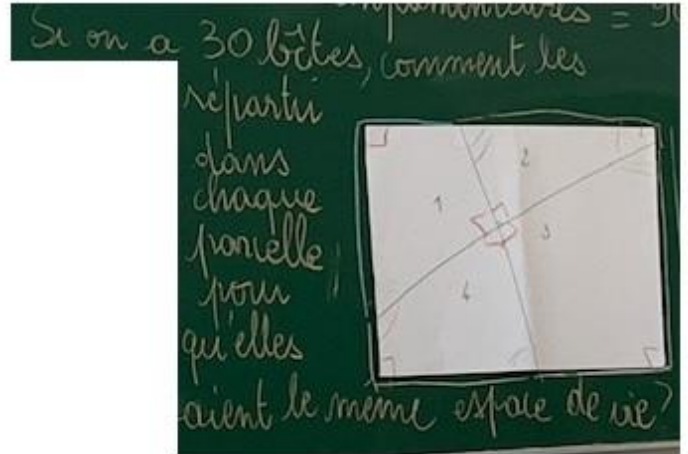 complémentaires = 90
Si on a 30 bêtes, comment les
répartir
dans
chaque
parcelle
pour
qu'elles
aient le même espace de vie ?
1
2
3
4